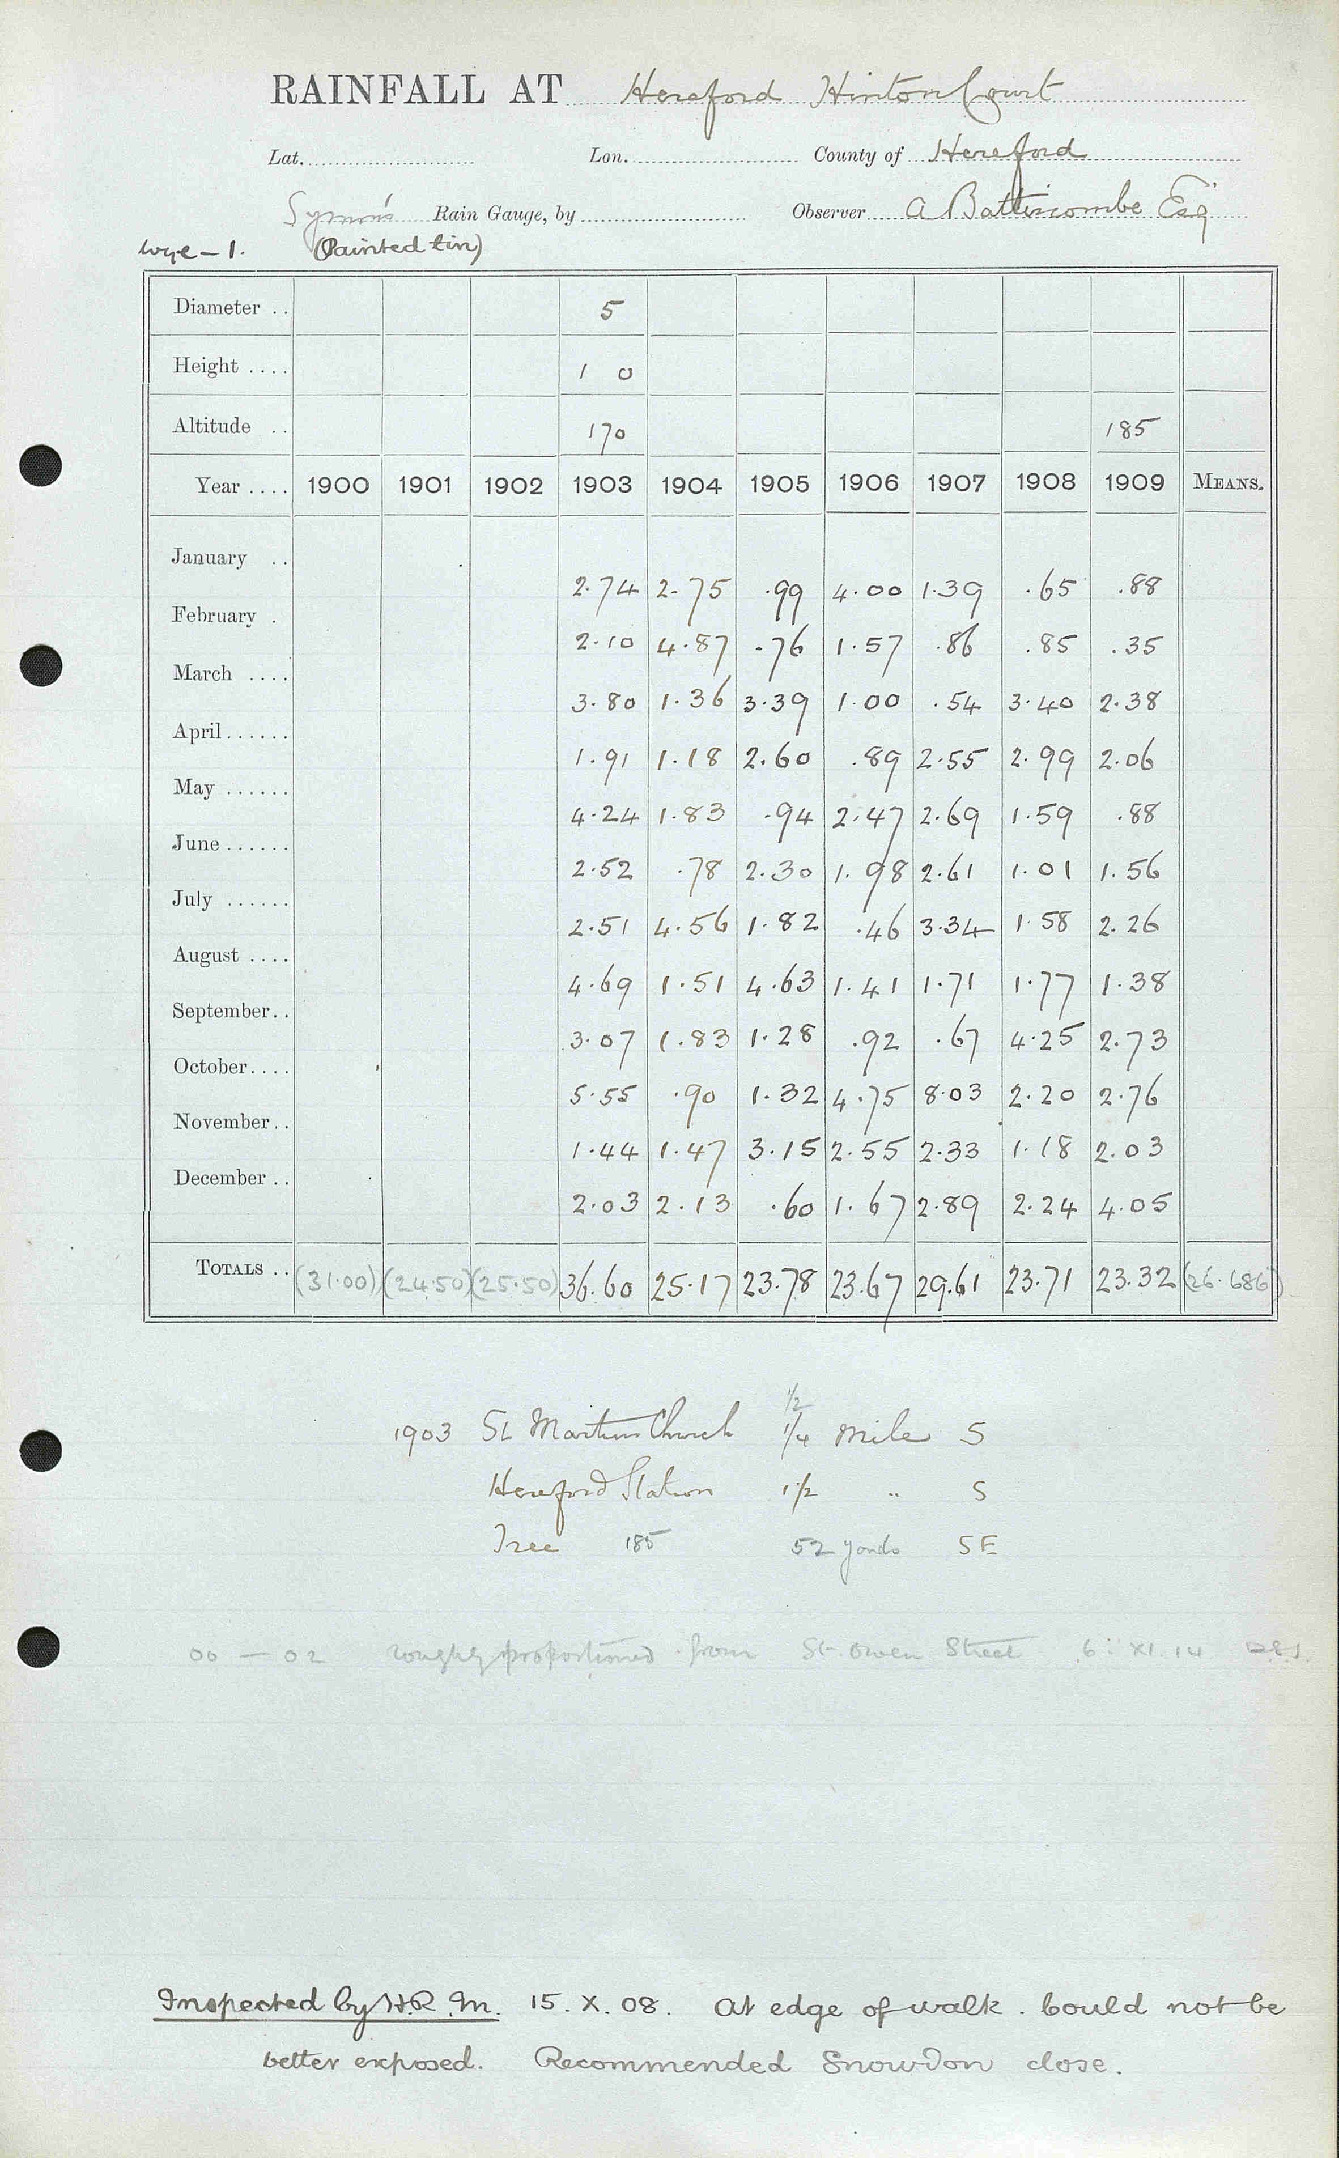 RAINFALL AT Hereford Hinton Court
Lat. Lon. County of Hereford
Symons Rain Gauge, by Observer A Battiscombe Esq
Wye - 1. (Painted tin)
Diameter .. 5
Height .... 1 0
Altitude .. 170 185
Year .... 1900 1901 1902 1903 1904 1905 1906 1907 1908 1909 MEANS.
January .. 2.74 2.75 .99 4.00 1.39 .65 .88
February . 2.10 4.87 .76 1.57 .86 .85 .35
March .... 3.80 1.36 3.39 1.00 .54 3.40 2.38
April...... 1.91 1.18 2.60 .89 2.55 2.99 2.06
May ...... 4.24 1.83 .94 2.47 2.69 1.59 .88
June...... 2.52 .78 2.30 1.98 2.61 1.01 1.56
July ...... 2.51 4.56 1.82 .46 3.34 1.58 2.26
August .... 4.69 1.51 4.63 1.41 1.71 1.77 1.38
September.. 3.07 1.83 1.28 .92 .67 4.25 2.73
October.... 5.55 .90 1.32 4.75 8.03 2.20 2.76
November.. 1.44 1.47 3.15 2.55 2.33 1.18 2.03
December .. 2.03 2.13 .60 1.67 2.89 2.24 4.05
TOTALS .. (31.00) (24.50) (25.50) 36.60 25.17 23.78 23.67 29.61 23.71 23.32 (26.686)
1/2
1903 St Martins Church 1/4 mile S
Hereford Station 1 1/2 " S
Tree 185 52 yards SE
00 - 02 roughly proportioned from St. Owen Street 6 : XI. 14
Inspected by H.R.M. 15. X. 08. At edge of walk. Could not be
better exposed. Recommended Snowdon close.